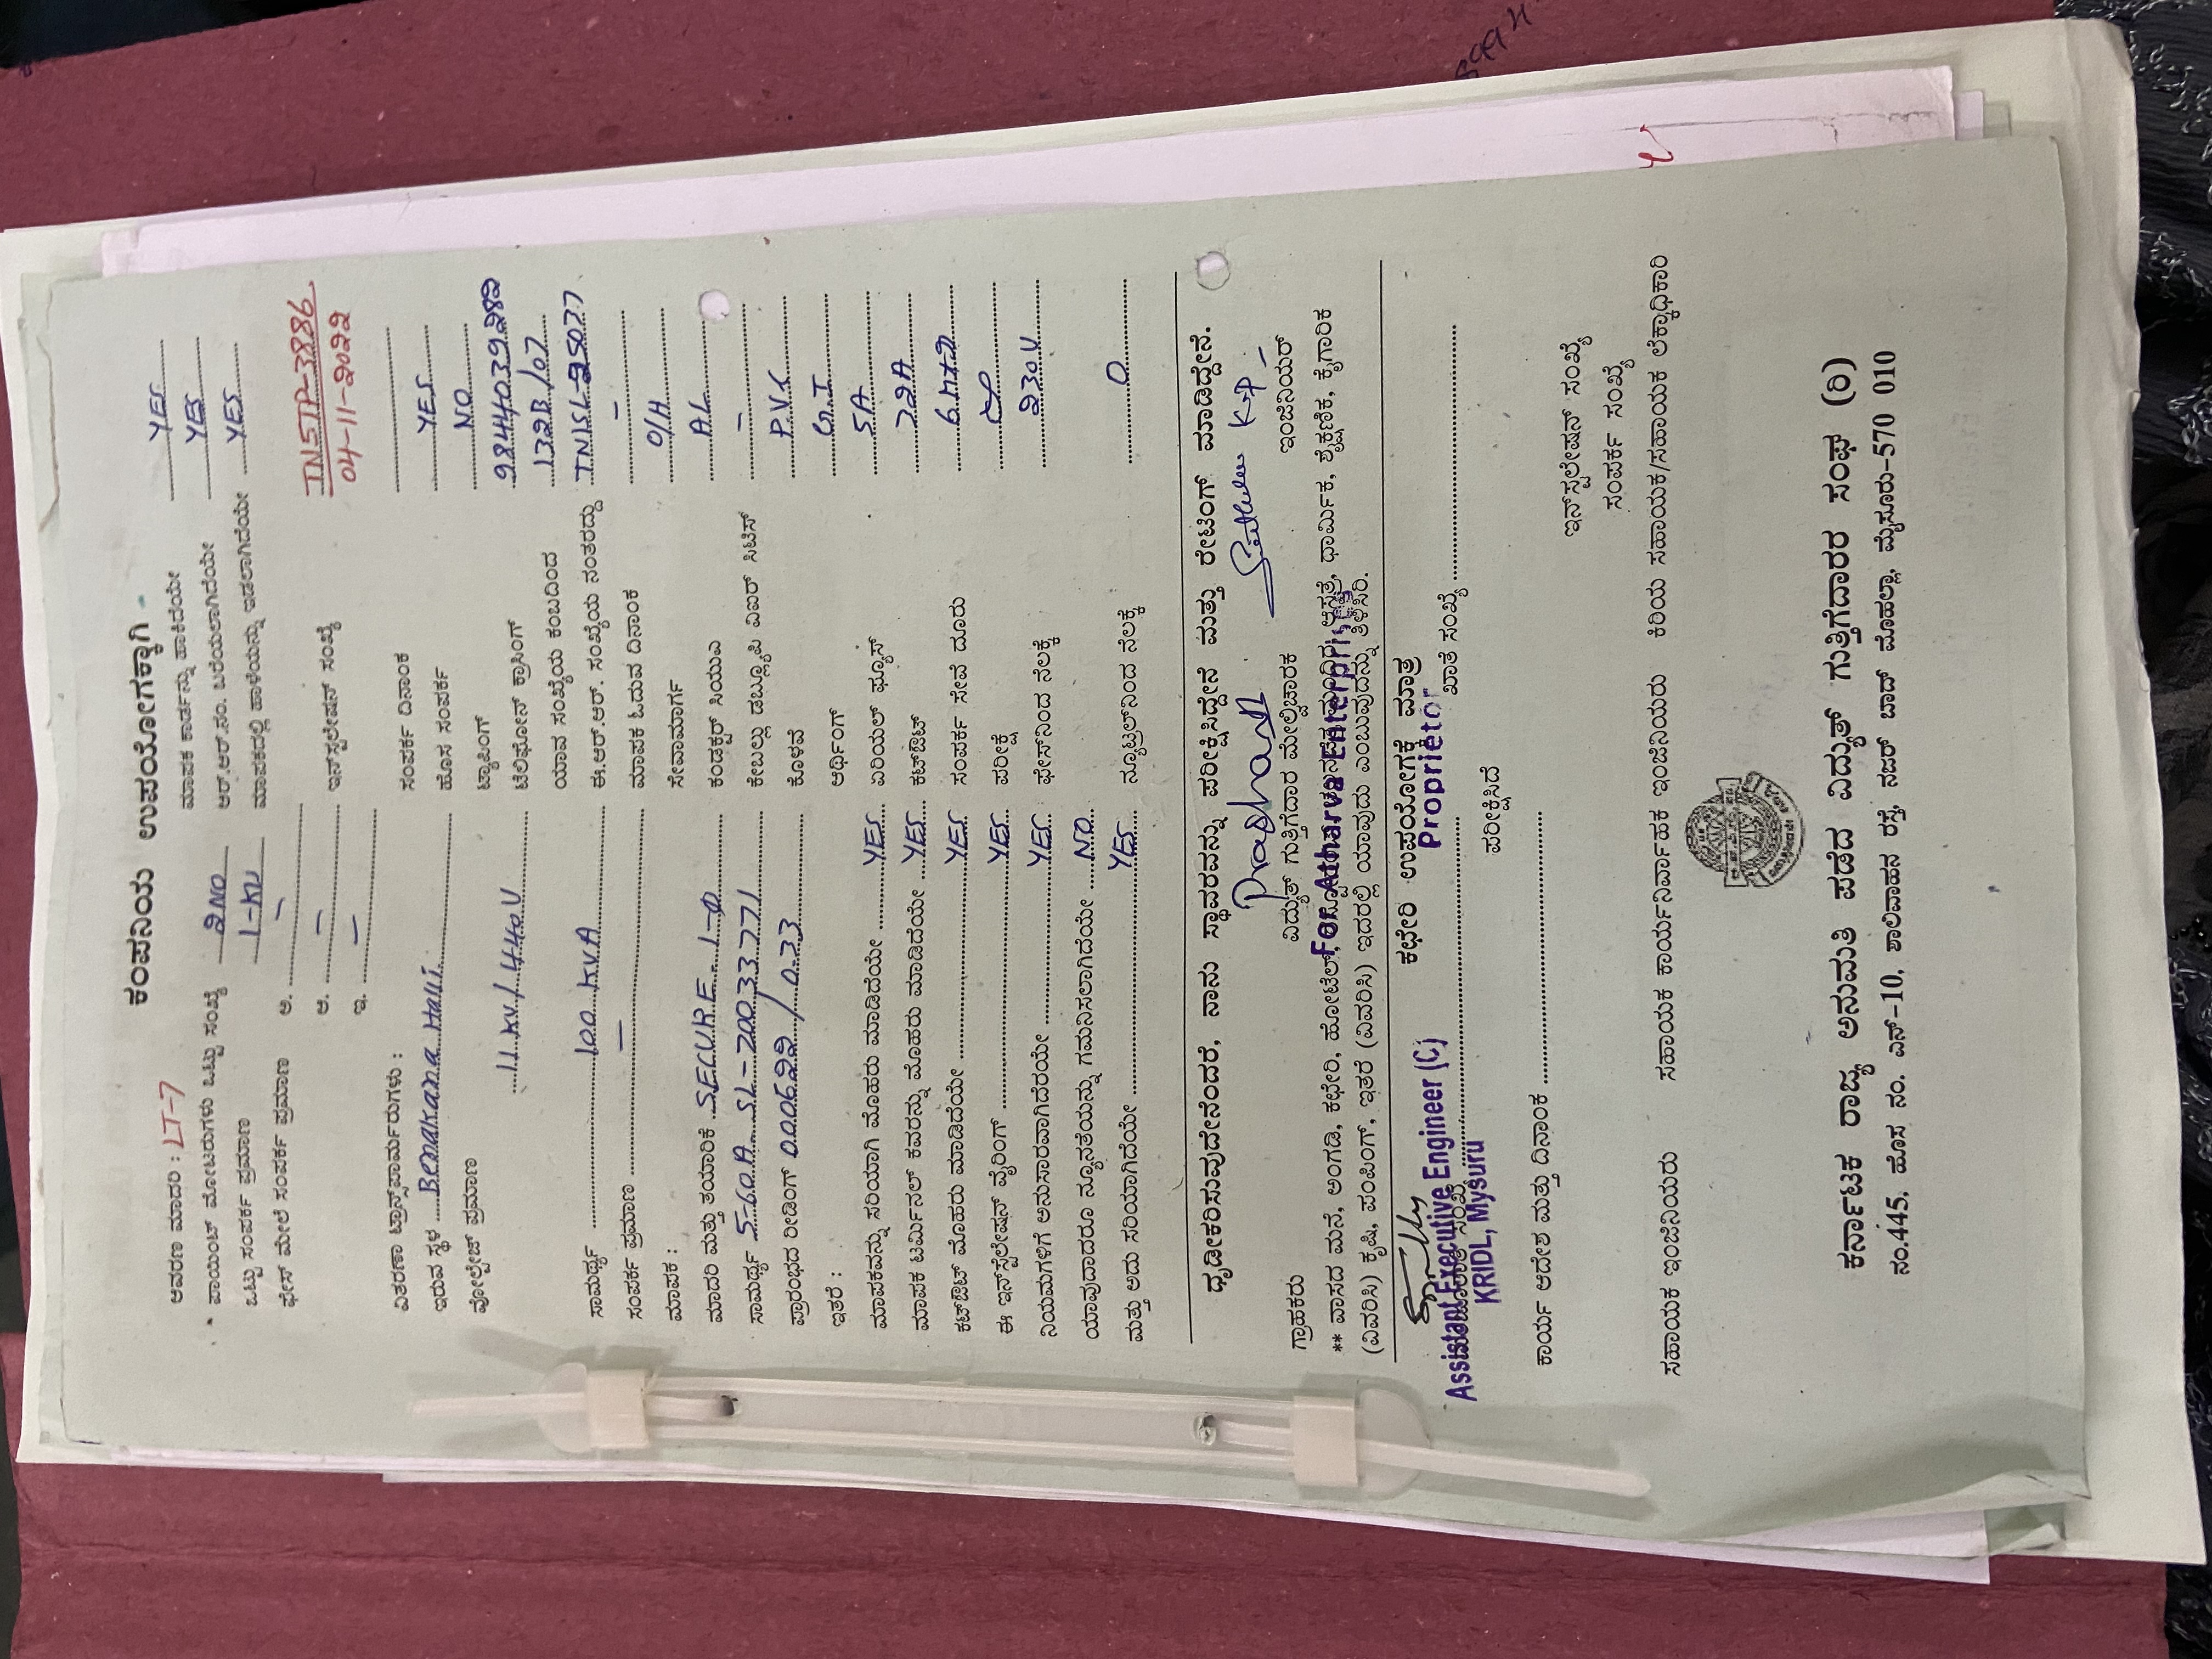 ಕಂಪನಿಯ ಉಪಯೋಗಕ್ಕಾಗಿ
ಆವರಣ ಮಾದರಿ : LT-7
ಮಾಪಕ ಕಾರ್ಡನ್ನು ಹಾಕಿದೆಯೇ YES
ಪಾಯಿಂಟ್ ಮೋಟರುಗಳು ಒಟ್ಟು ಸಂಖ್ಯೆ 2NO
ಆರ್.ಆರ್.ನಂ. ಬರೆಯಲಾಗಿದೆಯೇ YES
ಒಟ್ಟು ಸಂಪರ್ಕ ಪ್ರಮಾಣ 1-KW
ಮಾಪಕದಲ್ಲಿ ಹಾಳೆಯನ್ನು ಇಡಲಾಗಿದೆಯೇ YES
ಫೇಸ್ ಮೇಲೆ ಸಂಪರ್ಕ ಪ್ರಮಾಣ ಅ. –
ಆ. –
ಇನ್‌ಸ್ಟಲೇಷನ್ ಸಂಖ್ಯೆ TNSTP-3886
ಇ. –
04-11-2022
ವಿತರಣಾ ಟ್ರಾನ್ಸ್‌ಫಾರ್ಮರುಗಳು :
ಸಂಪರ್ಕ ದಿನಾಂಕ
ಇರುವ ಸ್ಥಳ Benakana Halli
ಹೊಸ ಸಂಪರ್ಕ YES
ವೋಲ್ಟೇಜ್ ಪ್ರಮಾಣ
ಟ್ಯಾಪಿಂಗ್ NO
11 KV / 440V
ಟೆಲಿಫೋನ್ ಕ್ರಾಸಿಂಗ್ 9844039282
ಯಾವ ಸಂಖ್ಯೆಯ ಕಂಬದಿಂದ 132B/07
ಸಾಮರ್ಥ್ಯ 100 KVA
ಈ.ಆರ್.ಆರ್. ಸಂಖ್ಯೆಯ ನಂತರದ್ದು TNSL-25077
ಸಂಪರ್ಕ ಪ್ರಮಾಣ –
ಮಾಪಕ ಓದುವ ದಿನಾಂಕ –
ಮಾಪಕ :
ಸೇವಾಮಾರ್ಗ O/H
ಮಾದರಿ ಮತ್ತು ತಯಾರಿಕೆ SECURE 1-Ø
ಕಂಡಕ್ಟರ್ ಸಿಯುಎ AL
ಸಾಮರ್ಥ್ಯ 5-60A SL-20033771
ಕೇಬಲ್ಲು ಡಬ್ಲ್ಯೂಪಿ ವಿಐಆರ್ ಸಿಟೆಸ್ –
ಪ್ರಾರಂಭದ ರೀಡಿಂಗ್ 000622 / 0.33
ಕೊಳವೆ P.V.C
ಇತರೆ :
ಆರ್ಥಿಂಗ್ G.I
ಮಾಪಕವನ್ನು ಸರಿಯಾಗಿ ಮೊಹರು ಮಾಡಿದೆಯೇ YES
ಏರಿಯಲ್ ಫ್ಯೂಸ್ 5A
ಮಾಪಕ ಟರ್ಮಿನಲ್ ಕವರನ್ನು ಮೊಹರು ಮಾಡಿದೆಯೇ YES
ಕಟ್‌ಔಟ್
ಕಟ್‌ಔಟ್ ಮೊಹರು ಮಾಡಿದೆಯೇ YES
ಸಂಪರ್ಕ ಸೇವೆ ದೂರು
ಈ ಇನ್‌ಸ್ಟಲೇಷನ್ ವೈರಿಂಗ್ YES
ಪರೀಕ್ಷೆ
ನಿಯಮಗಳಿಗೆ ಅನುಸಾರವಾಗಿದೆರಯೇ YES
ಫೇಸ್‌ನಿಂದ ನೆಲಕ್ಕೆ 230V
ಯಾವುದಾದರೂ ನ್ಯೂನತೆಯನ್ನು ಗಮನಿಸಲಾಗಿದೆಯೇ NO
ಮತ್ತು ಅದು ಸರಿಯಾಗಿದೆಯೇ YES
ನ್ಯೂಟ್ರಲ್‌ನಿಂದ ನೆಲಕ್ಕೆ 0
ಧೃಡೀಕರಿಸುವುದೇನೆಂದರೆ, ನಾನು ಸ್ಥಾವರವನ್ನು ಪರೀಕ್ಷಿಸಿದ್ದೇನೆ ಮತ್ತು ರೇಟಿಂಗ್ ಮಾಡಿದ್ದೇನೆ.
Prashanth
ಗ್ರಾಹಕರು
ವಿದ್ಯುತ್ ಗುತ್ತಿಗೆದಾರ ಮೇಲ್ವಿಚಾರಕ
ಇಂಜಿನಿಯರ್
For Atharva Enterprises
** ವಾಸದ ಮನೆ, ಅಂಗಡಿ, ಕಛೇರಿ, ಹೋಟೆಲ್, ಆಸ್ಪತ್ರೆ, ಧಾರ್ಮಿಕ, ಶೈಕ್ಷಣಿಕ, ಕೈಗಾರಿಕ
(ವಿವರಿಸಿ) ಕೃಷಿ, ಪಂಪಿಂಗ್, ಇತರೆ (ವಿವರಿಸಿ) ಇದರಲ್ಲಿ ಯಾವುದು ಎಂಬುವುದನ್ನು ತಿಳಿಸಿರಿ.
ಕಛೇರಿ ಉಪಯೋಗಕ್ಕೆ ಮಾತ್ರ
Proprietor
Assistant Executive Engineer (C)
KRIDL, Mysuru
ಖಾತೆ ಸಂಖ್ಯೆ
ಪರೀಕ್ಷಿಸಿದೆ
ಕಾರ್ಯ ಆದೇಶ ಮತ್ತು ದಿನಾಂಕ
ಇನ್‌ಸ್ಟಲೇಷನ್ ಸಂಖ್ಯೆ
ಸಂಪರ್ಕ ಸಂಖ್ಯೆ
ಸಹಾಯಕ ಇಂಜಿನಿಯರು ಸಹಾಯಕ ಕಾರ್ಯನಿರ್ವಾಹಕ ಇಂಜಿನಿಯರು ಕಿರಿಯ ಸಹಾಯಕ/ಸಹಾಯಕ ಲೆಕ್ಕಾಧಿಕಾರಿ
ಕರ್ನಾಟಕ ರಾಜ್ಯ ಅನುಮತಿ ಪಡೆದ ವಿದ್ಯುತ್ ಗುತ್ತಿಗೆದಾರರ ಸಂಘ (ರಿ)
ನಂ.445, ಹೊಸ ನಂ. ಎನ್-10, ಶಾಲಿವಾಹನ ರಸ್ತೆ, ನಜರ್ ಬಾದ್ ಮೊಹಲ್ಲಾ, ಮೈಸೂರು-570 010